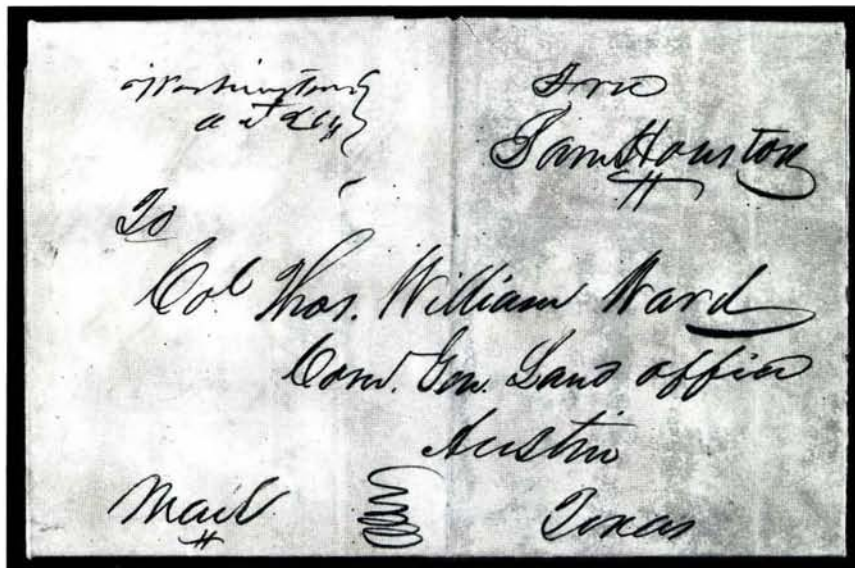 Washington
Free
Sam Houston
To
Col Thos. William Ward
Comr. Gen. Land office
Austin
Mail
Texas